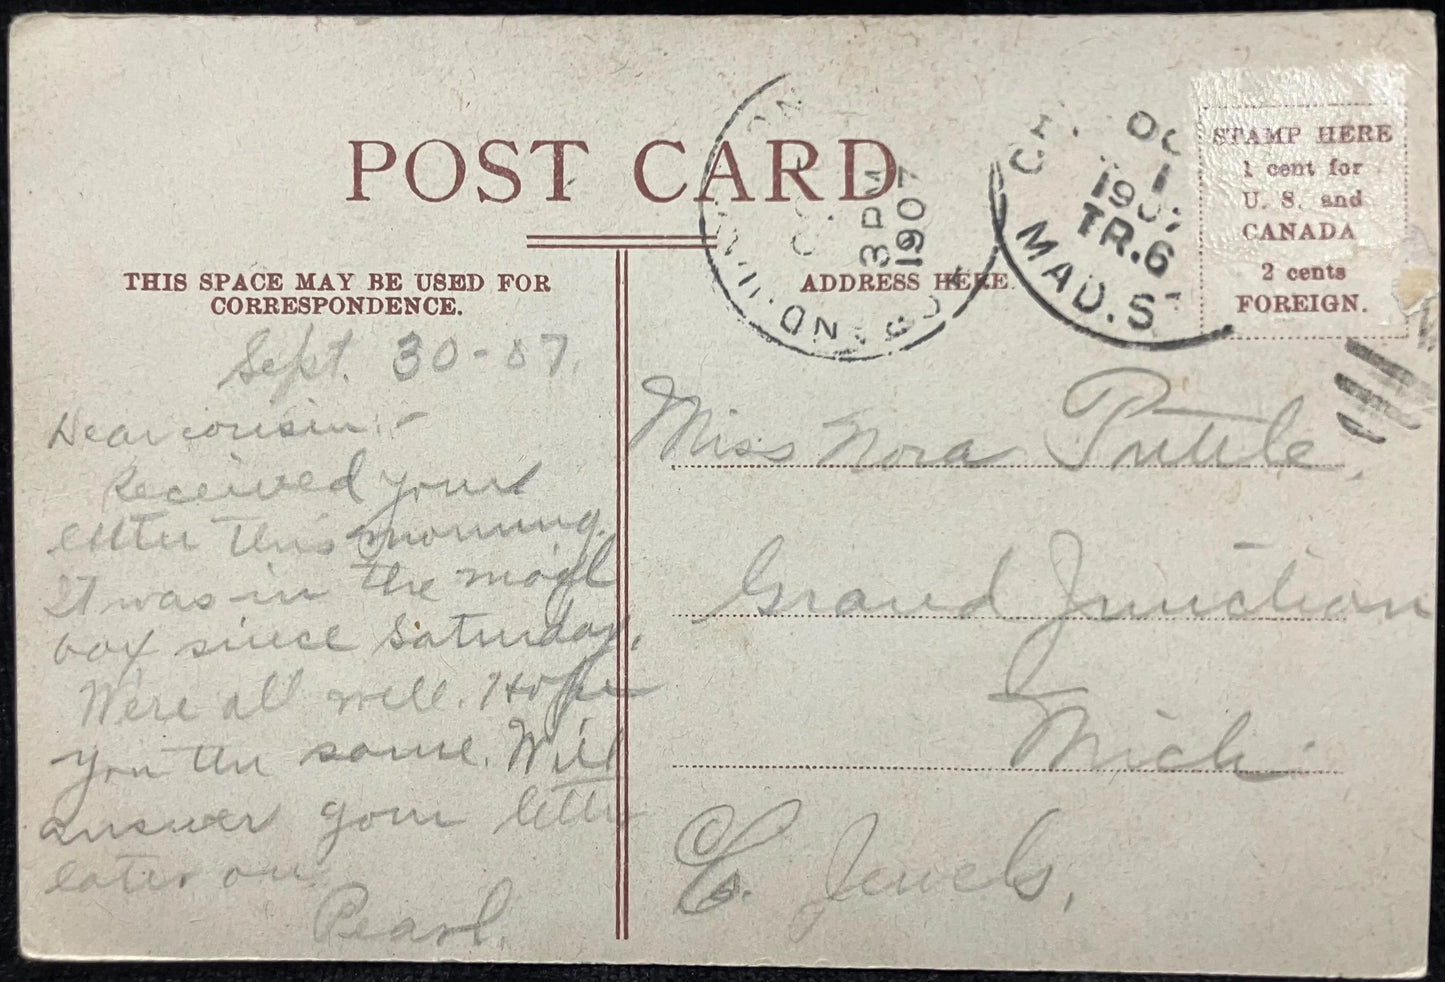 POST CARD
THIS SPACE MAY BE USED FOR
CORRESPONDENCE.
ADDRESS HERE.
STAMP HERE
1 cent for
U. S. and
CANADA
2 cents
FOREIGN.
3 PM
1907
OC
1
190
TR.6
MAD. ST
Sept. 30-07.
Dear cousin:-
Received your
letter this morning.
It was in the mail
box since Saturday.
We're all well. Hope
you the same. Will
answer your letter
later on.
Pearl.
Miss Nora
Grand Junction
Mich.
C. Jewels,